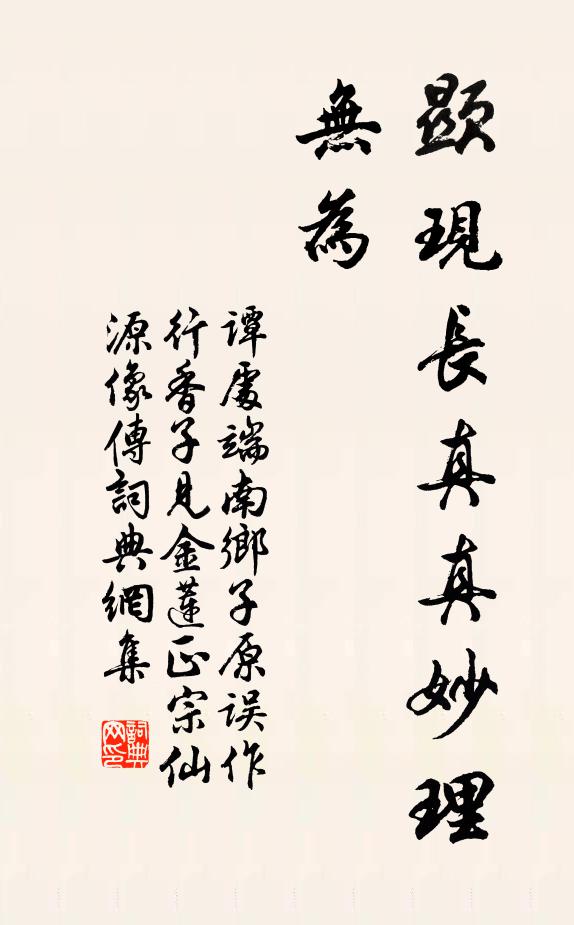 顯現長真真妙理
無為
谭處端南鄉子原误作
行香子見金蓮正宗仙
源像傳詞典網集
詞典
网印